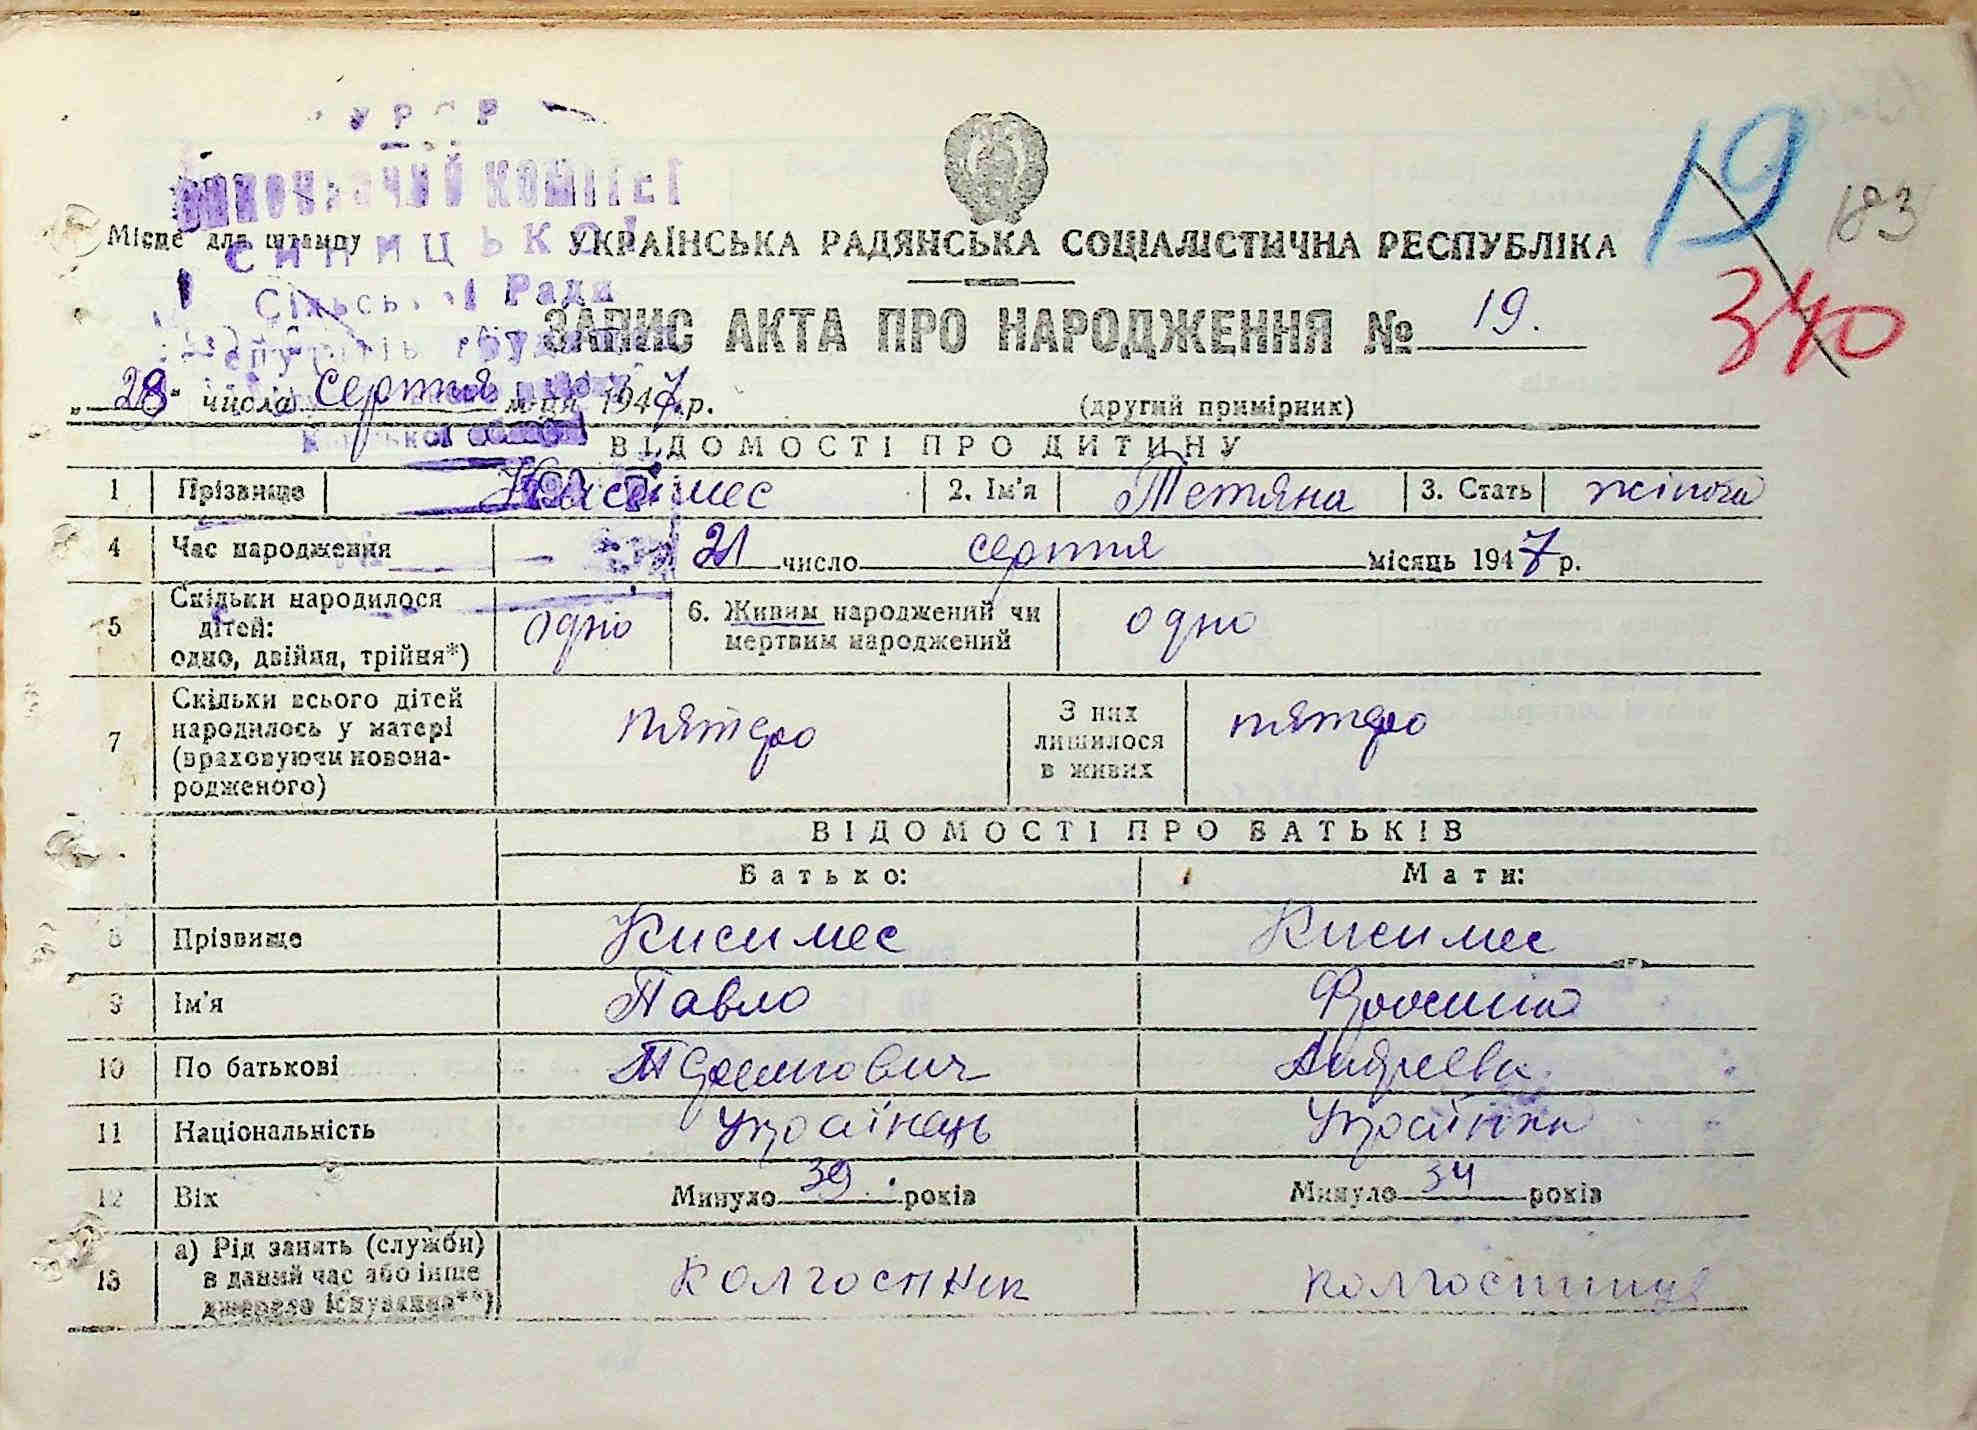 УРСР
Виконавчий комітет
Синицької
Місце для штампу
УКРАЇНСЬКА РАДЯНСЬКА СОЦІАЛІСТИЧНА РЕСПУБЛІКА
19
183
Сільської Ради
ЗАПИС АКТА ПРО НАРОДЖЕННЯ № 19.
340
"28" числа серпня м-ця 1947 р.
(другий примірник)
ВІДОМОСТІ ПРО ДИТИНУ
1 Прізвище Кисимес 2. Ім'я Тетяна 3. Стать жіноча
4 Час народження 21 число серпня місяць 1947 р.
5 Скільки народилося дітей: одно, двійня, трійня*) одно 6. Живим народжений чи мертвим народжений одно
7 Скільки всього дітей народилось у матері (враховуючи новонародженого) пятеро З них лишилося в живих пятеро
ВІДОМОСТІ ПРО БАТЬКІВ
Батько: Мати:
8 Прізвище Кисимес Кисимес
9 Ім'я Павло
10 По батькові Андреевн
11 Національність Українець Українка
12 Вік Минуло 39 років Минуло 34 років
13 а) Рід занять (служби) в даний час або інше джерело існування**) колгоспник колгоспниця